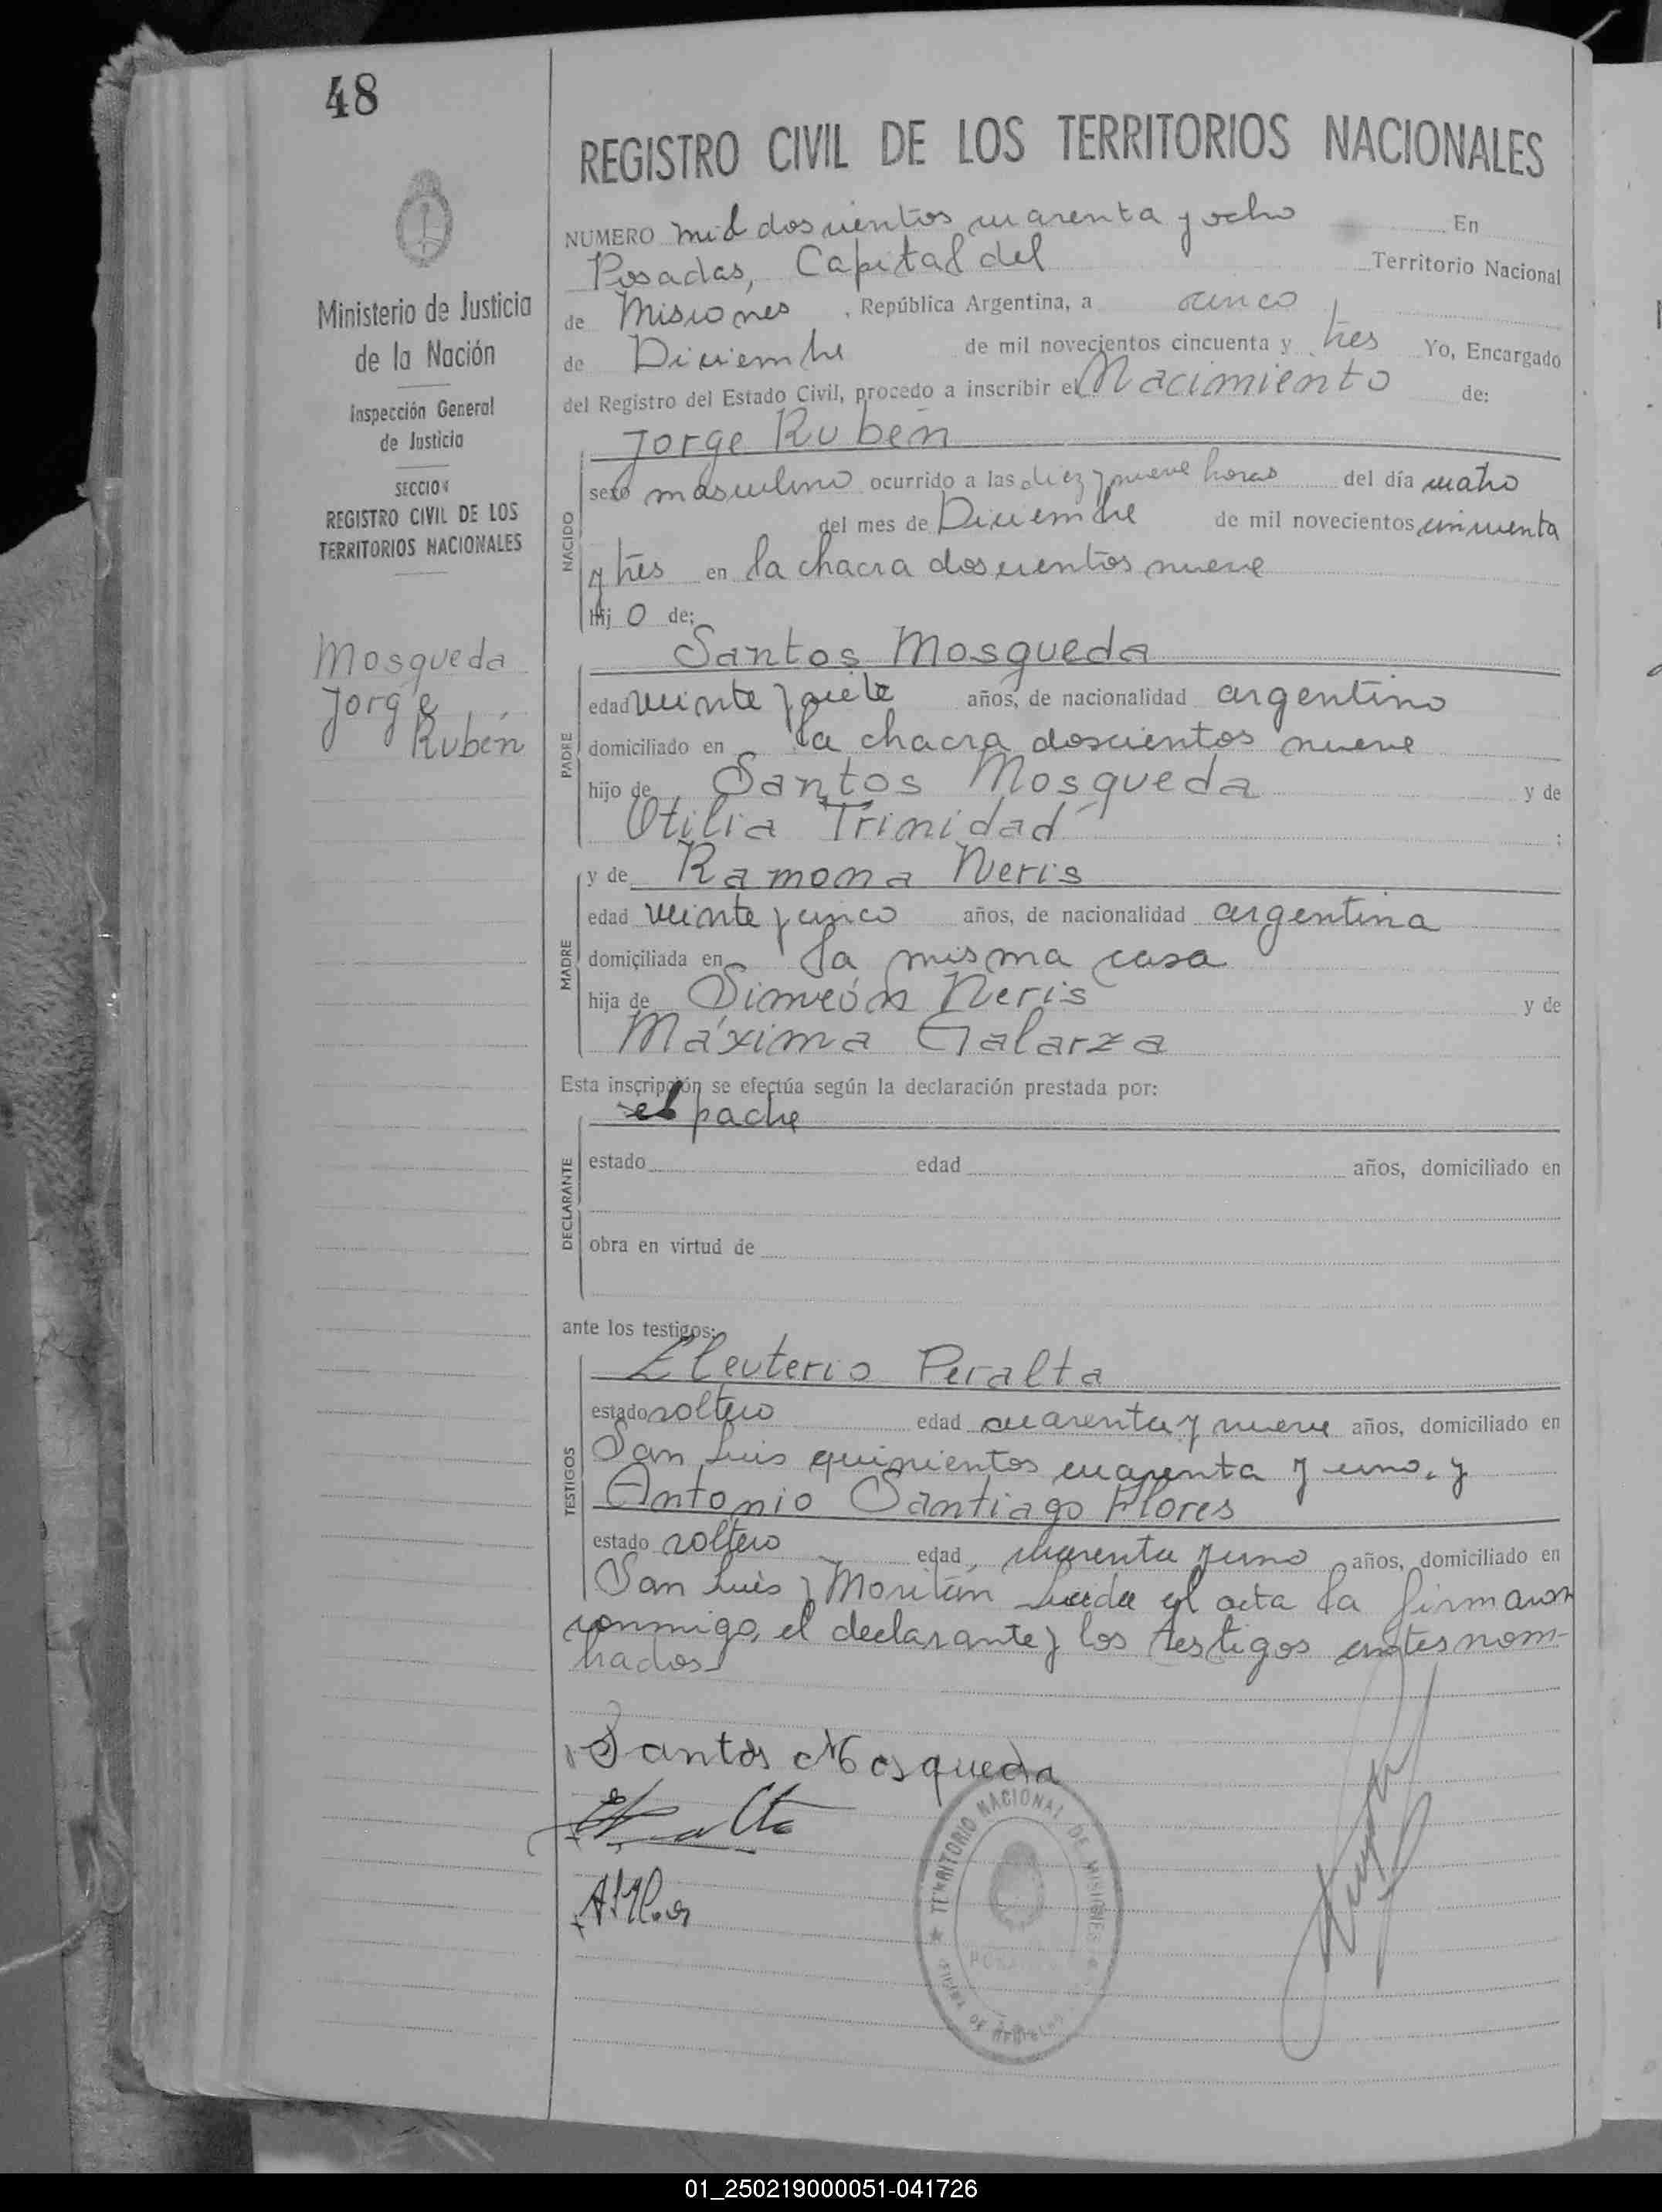 48
REGISTRO CIVIL DE LOS TERRITORIOS NACIONALES
NUMERO mil doscientos cuarenta y ocho En
Posadas, Capital del Territorio Nacional
de Misiones, República Argentina, a cinco
de Diciembre de mil novecientos cincuenta y tres Yo, Encargado
del Registro del Estado Civil, procedo a inscribir el Nacimiento de:
Ministerio de Justicia
de la Nación
Inspección General
de Justicia
SECCION
REGISTRO CIVIL DE LOS
TERRITORIOS NACIONALES
Mosqueda
Jorge
Rubén
NACIDO
Jorge Rubén
sexo masculino ocurrido a las diez y nueve horas del día cuatro
del mes de Diciembre de mil novecientos cincuenta
y tres en la chacra doscientos nueve
hij o de:
PADRE
Santos Mosqueda
edad veinte y siete años, de nacionalidad argentino
domiciliado en la chacra doscientos nueve
hijo de Santos Mosqueda y de
Otilia Trinidad ;
MADRE
y de Ramona Neris
edad veinte y cinco años, de nacionalidad argentina
domiciliada en la misma casa
hija de Simeón Neris y de
Máxima Galarza
Esta inscripción se efectúa según la declaración prestada por:
el padre
DECLARANTE
estado edad años, domiciliado en
obra en virtud de
ante los testigos:
TESTIGOS
Eleuterio Peralta
estado soltero edad cuarenta y nueve años, domiciliado en
San Luis quinientos cuarenta y uno, y
Antonio Santiago Flores
estado soltero edad cuarenta y uno años, domiciliado en
San Luis y Moritán Leida el acta la firmaron
conmigo, el declarante y los testigos antes nom-
brados
Santos Mosqueda
TERRITORIO NACIONAL DE MISIONES
01_250219000051-041726